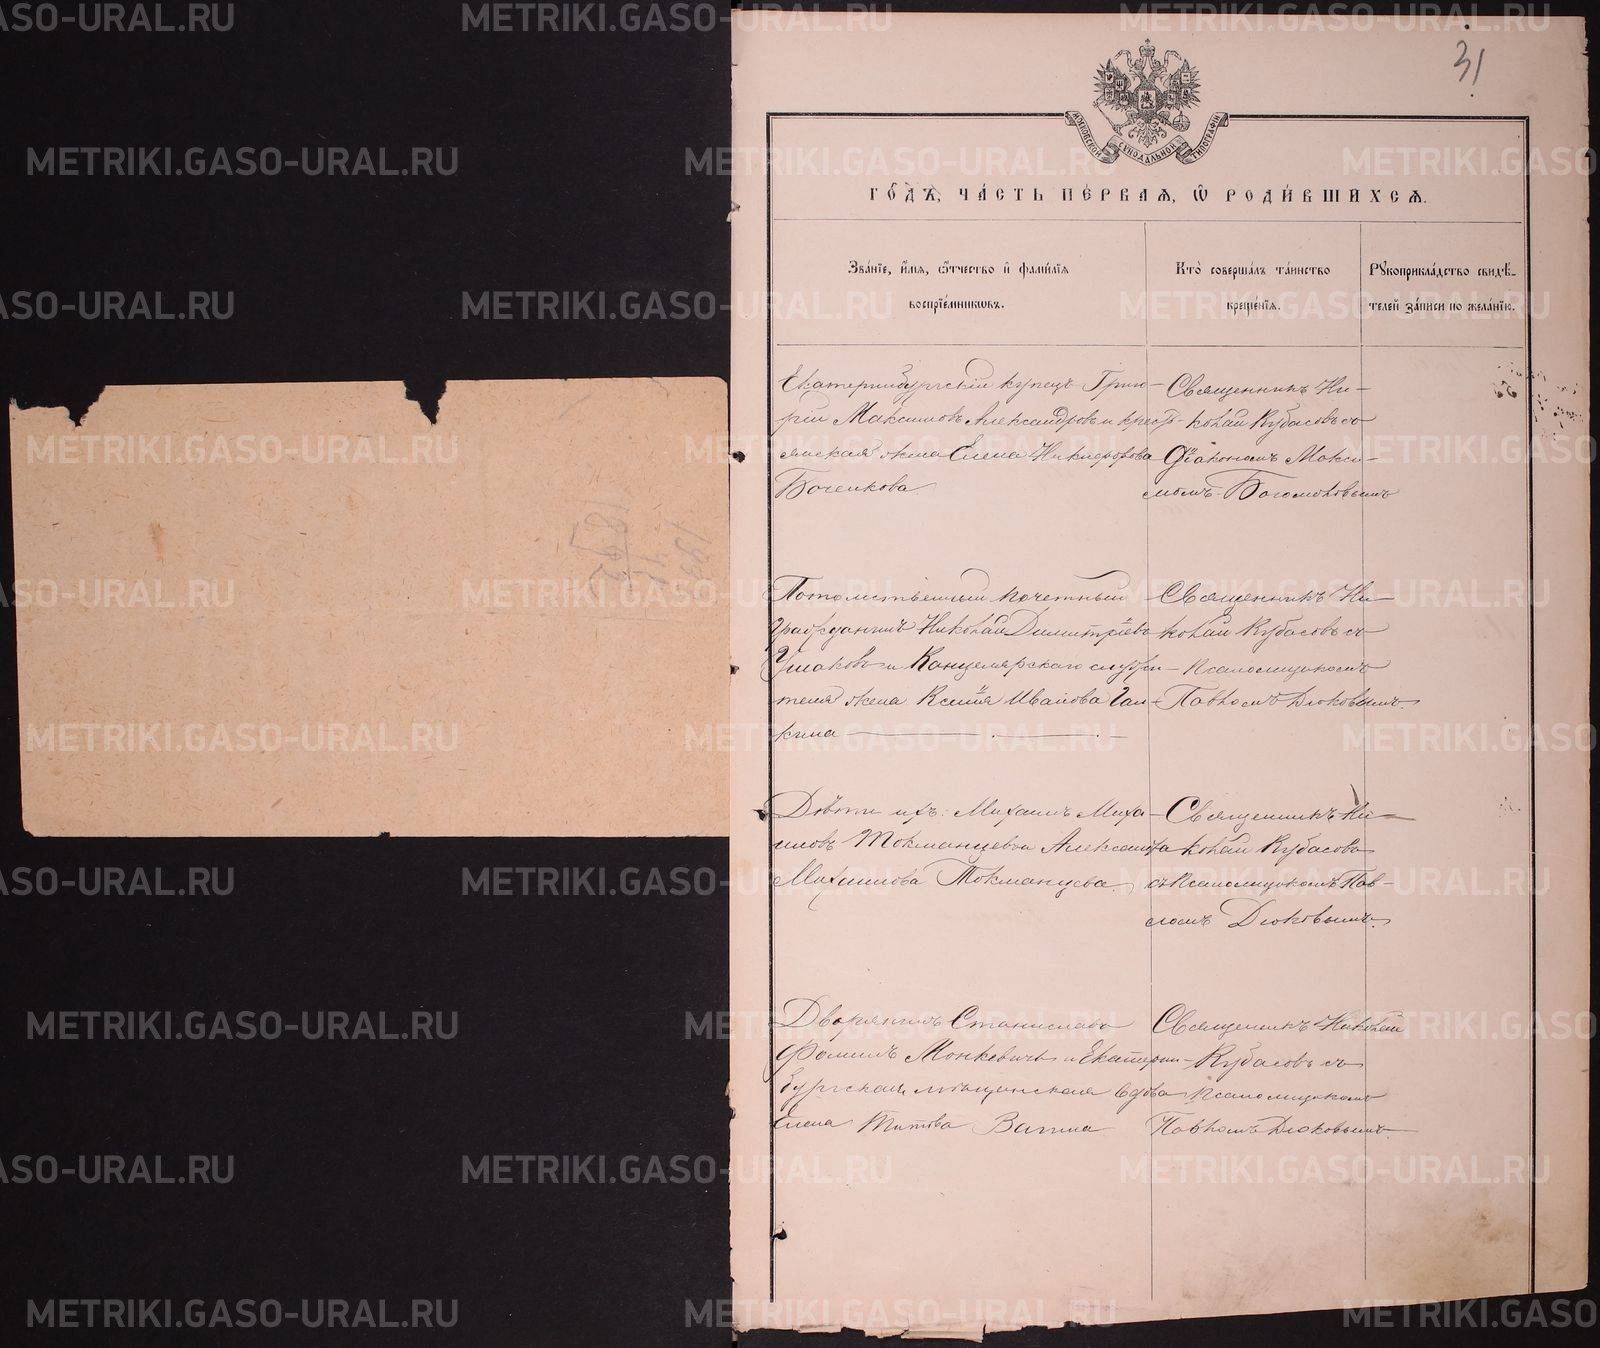 31
МОСКОВСКОЙ СѴНОДАЛЬНОЙ ТИПОГРАФІИ
ГОДЪ, ЧАСТЬ ПЕРВАЯ, Ѡ РОДИВШИХСЯ.
Званіе, имя, ѿчество и фамилія воспріемниковъ.
Кто совершалъ таинство крещенія.
Рукоприкладство свидѣтелей записи по желанію.
Екатеринбургскій купецъ Григо-
рій Максимовъ Александровъ и крест-
янская жена Елена Никифорова
Боченкова.
Священникъ Ни-
колай Кубасовъ съ
Діакономъ Макси-
момъ Богомоловымъ
Потомственный почетный
гражданинъ Николай Димитріевъ
Ушаковъ и Канцелярскаго служи-
теля жена Ксенія Иванова Гал-
кина
Священникъ Ни-
колай Кубасовъ съ
Псаломщикомъ
Павломъ Дюковымъ.
Дѣти ихъ: Михаилъ Миха-
иловъ Токманцевъ и Александра
Михаилова Токманцева
Священникъ Ни-
колай Кубасовъ
съ Псаломщикомъ Пав-
ломъ Дюковымъ.
Дворянинъ Станиславъ
Фоминъ Монкевичъ и Екатерин-
бургская мѣщанская вдова
Елена Титова Вагина
Священникъ Николай
Кубасовъ съ
Псаломщикомъ
Павломъ Дюковымъ
1893
METRIKI.GASO-URAL.RU